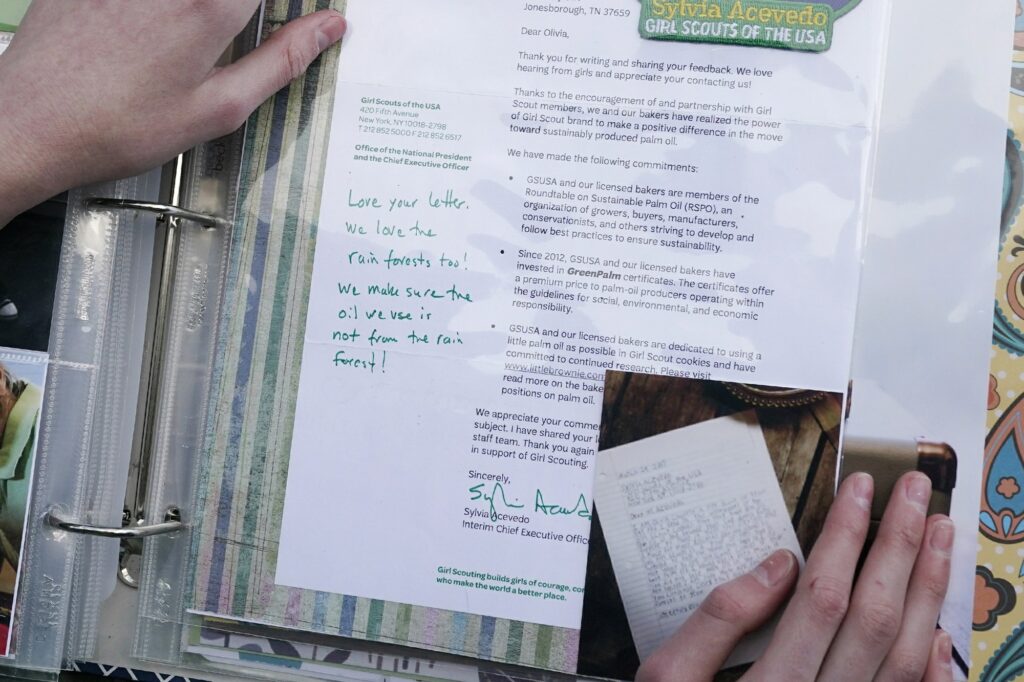 Jonesborough, TN 37659
Sylvia Acevedo
GIRL SCOUTS OF THE USA
Dear Olivia,
Thank you for writing and sharing your feedback. We love
hearing from girls and appreciate your contacting us!
Thanks to the encouragement of and partnership with Girl
Scout members, we and our bakers have realized the power
of Girl Scout brand to make a positive difference in the move
toward sustainably produced palm oil.
We have made the following commitments:
• GSUSA and our licensed bakers are members of the
Roundtable on Sustainable Palm Oil (RSPO), an
organization of growers, buyers, manufacturers,
conservationists, and others striving to develop and
follow best practices to ensure sustainability.
• Since 2012, GSUSA and our licensed bakers have
invested in GreenPalm certificates. The certificates offer
a premium price to palm-oil producers operating within
the guidelines for social, environmental, and economic
responsibility.
• GSUSA and our licensed bakers are dedicated to using a
little palm oil as possible in Girl Scout cookies and have
committed to continued research. Please visit
www.littlebrownie.com
read more on the bake
positions on palm oil.
We appreciate your comme
subject. I have shared your
staff team. Thank you again
in support of Girl Scouting.
Sincerely,
Sylvia Acevedo
Sylvia Acevedo
Interim Chief Executive Office
Girl Scouting builds girls of courage, co
who make the world a better place.
Girl Scouts of the USA
420 Fifth Avenue
New York, NY 10018-2798
T 212 852 5000 F 212 852 6517
Office of the National President
and the Chief Executive Officer
Love your letter.
We love the
rain forests too!
We make sure the
oil we use is
not from the rain
forest!